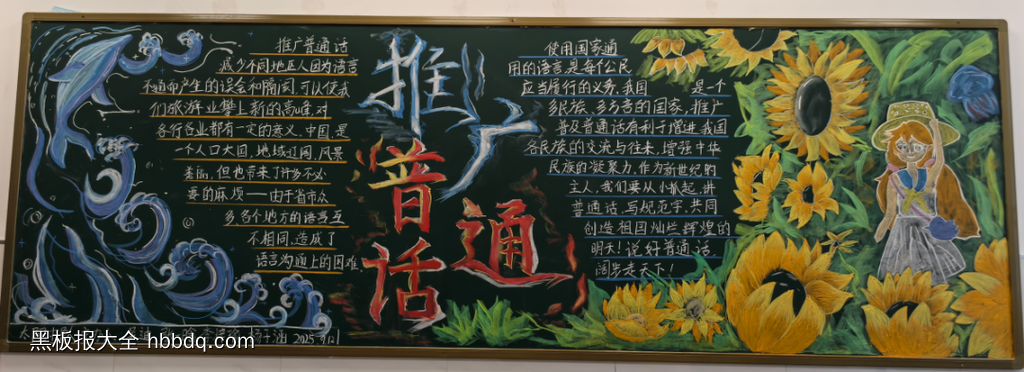 推广普通话
减少不同地区人因为语言
不通而产生的误会和隔阂,可以使我
们旅游业攀上新的高峰,对
各行各业都有一定的意义,中国是
一个人口大国,地域辽阔,风景
秀丽,但也带来了许多不必
要的麻烦——由于省市众
多,各个地方的语言互
不相同,造成了
语言沟通上的困难
推广
普通
话
使用国家通
用的语言是每个公民
应当履行的义务,我国 是一个
多民族、多方言的国家,推广
普及普通话有利于增进我国
各民族的交流与往来,增强中华
民族的凝聚力,作为新世纪的
主人,我们要从小抓起,讲
普通话,写规范字,共同
创造祖国灿烂辉煌的
明天!说好普通话,
阔步走天下!
2025.9.12
黑板报大全 hbbdq.com